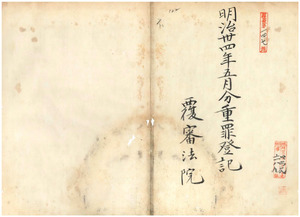 明治卅四年五月分重罪登記
覆審法院